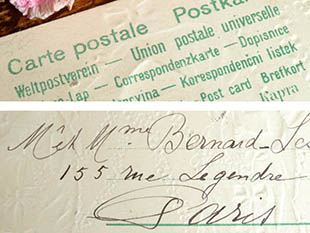 Carte postale Postkar
Weltpostverein — Union postale universelle
Lap — Correspondenzkarte — Dopisnice
Korespondenční listek
Post card Brefkort
M. et Mme Bernard-Le
155 rue Legendre
Paris